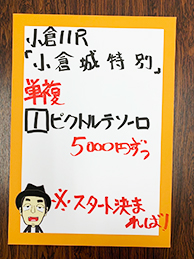 小倉11R
「小倉城特別」
単複
1 ビクトルテソーロ
5000円ずつ
※スタート決ま
れば!!